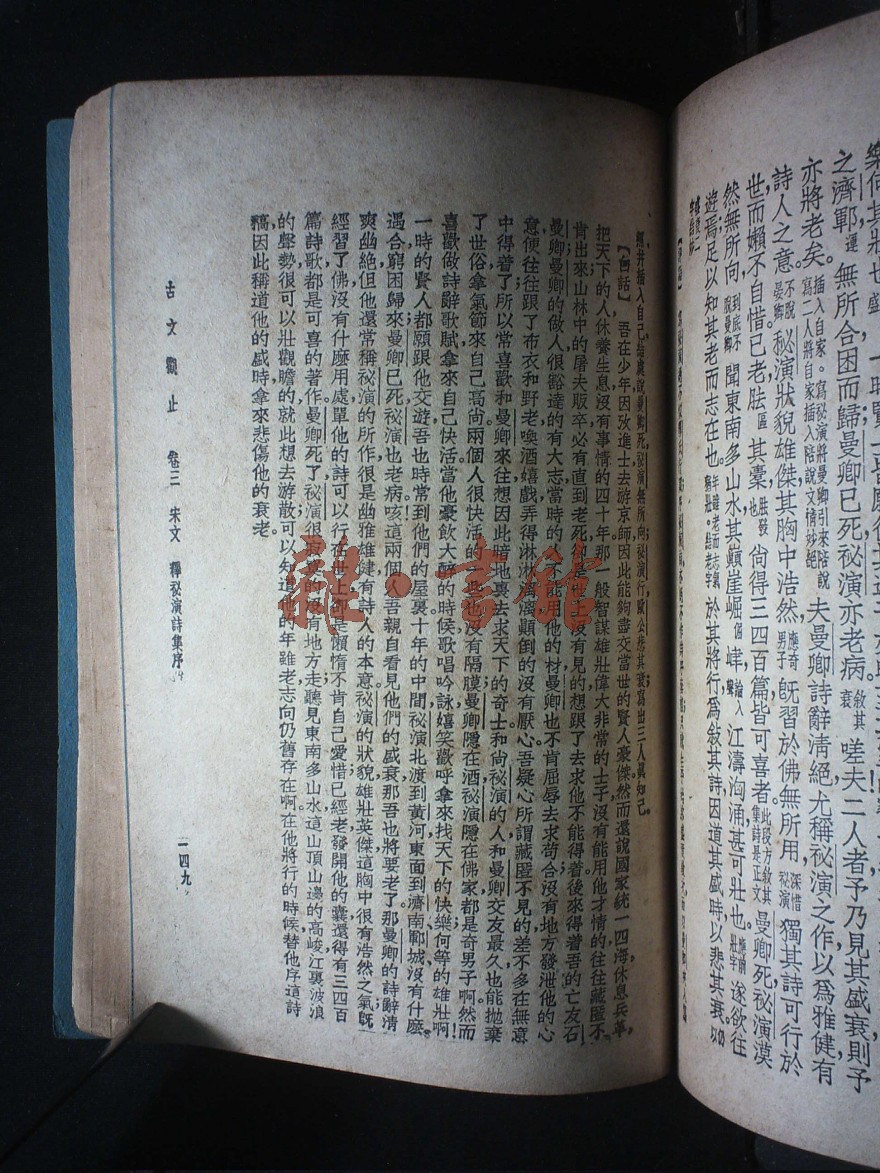 樂何其壯也盛
一時賢士皆願從其遊予
之濟鄆運無所合困而歸曼卿已死祕演亦老病敘其衰嗟夫二人者予乃見其盛衰則予
亦將老矣插入自家。寫祕演將曼卿引來陪說寫二人將自家插入陪說文情妙絕夫曼卿詩辭清絕尤稱祕演之作以爲雅健有
詩人之意不脫曼卿祕演狀貌雄傑其胸中浩然應奇男子既習於佛無所用深惜祕演獨其詩可行於
世而嬾不自惜已老胠區其橐胠發也尙得三四百篇皆可喜者此段方敘其集詩是正文曼卿死祕演漠
然無所向到底不脫曼卿聞東南多山水其巔崖崛倔峍江濤洶涌甚可壯也應前壯字遂欲往
遊焉足以知其老而志在也年雖老而志氣猶壯。結老字於其將行爲敘其詩因道其盛時以悲其衰
經幷插入自己結處說曼卿死祕演無所向祕演行歐公悲其衰寫出三人眞知己
【白話】吾在少年因攷進士去游京師因此能夠盡交當世的賢人豪傑然而還說國家統一四海休息兵革
把天下的人休養生息沒有事情的四十年那一般智謀雄壯偉大非常的士子沒有能用他才情的往往藏匿不
肯出來山林中的屠夫販卒必有直到老死却是世上沒有見的想跟了去求他不能得着後來得着吾的亡友石
曼卿曼卿的做人很谿達的有大志當時的人不能用他的材曼卿也不肯屈辱去求苟合沒有地方發泄他的心
意便往往跟了布衣和野老喚酒嬉戲弄得淋淋漓漓顚倒的沒有厭心吾疑心所謂藏匿不見的差不多在無意
中得着了所以常喜歡和曼卿來往想因此暗地裏去求天下的奇士和尙祕演的人和曼卿交友最久也能拋棄
了世俗拿氣節來自己高尙兩個人很快活的一些也沒有隔膜曼卿隱在酒祕演隱在佛家都是奇男子啊然而
喜歡做詩辭歌賦拿來自己快活當他豪飲大醉的時候歌唱吟詠嬉笑歡呼拿來找天下的快樂何等的雄壯啊！
一時的賢人都願跟他交遊吾也時常到他們的屋裏十年的中間祕演北渡到黃河東面到濟南鄆城沒有什麼
遇合窮困歸來曼卿已死祕演也老病咳這兩個人吾親自看見他們的盛衰那吾也將要老了那曼卿的詩辭清
爽幽絕但他還常稱祕演的所作很是幽雅雄健有詩人的本意祕演的狀貌雄壯英傑這胸中很有浩然之氣旣
經習了佛沒有什麼用處單他的詩可以行在世上却是懶惰不肯自己愛惜已經老發開他的囊還得有三四百
篇詩歌都是可喜的著作曼卿死了祕演很寂寞的沒有地方走聽見東南多山水這山頂山邊的高峻江裏波浪
的聲勢很可以壯觀瞻的就此想去游散可以知道他的年雖老志向仍舊存在啊在他將行的時候替他序這詩
稿因此稱道他的盛時拿來悲傷他的衰老。
古文觀止 卷三 宋文 釋祕演詩集序
一四九
雜·書館